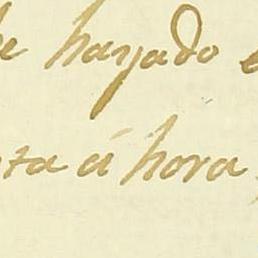 hayado
ta á hora